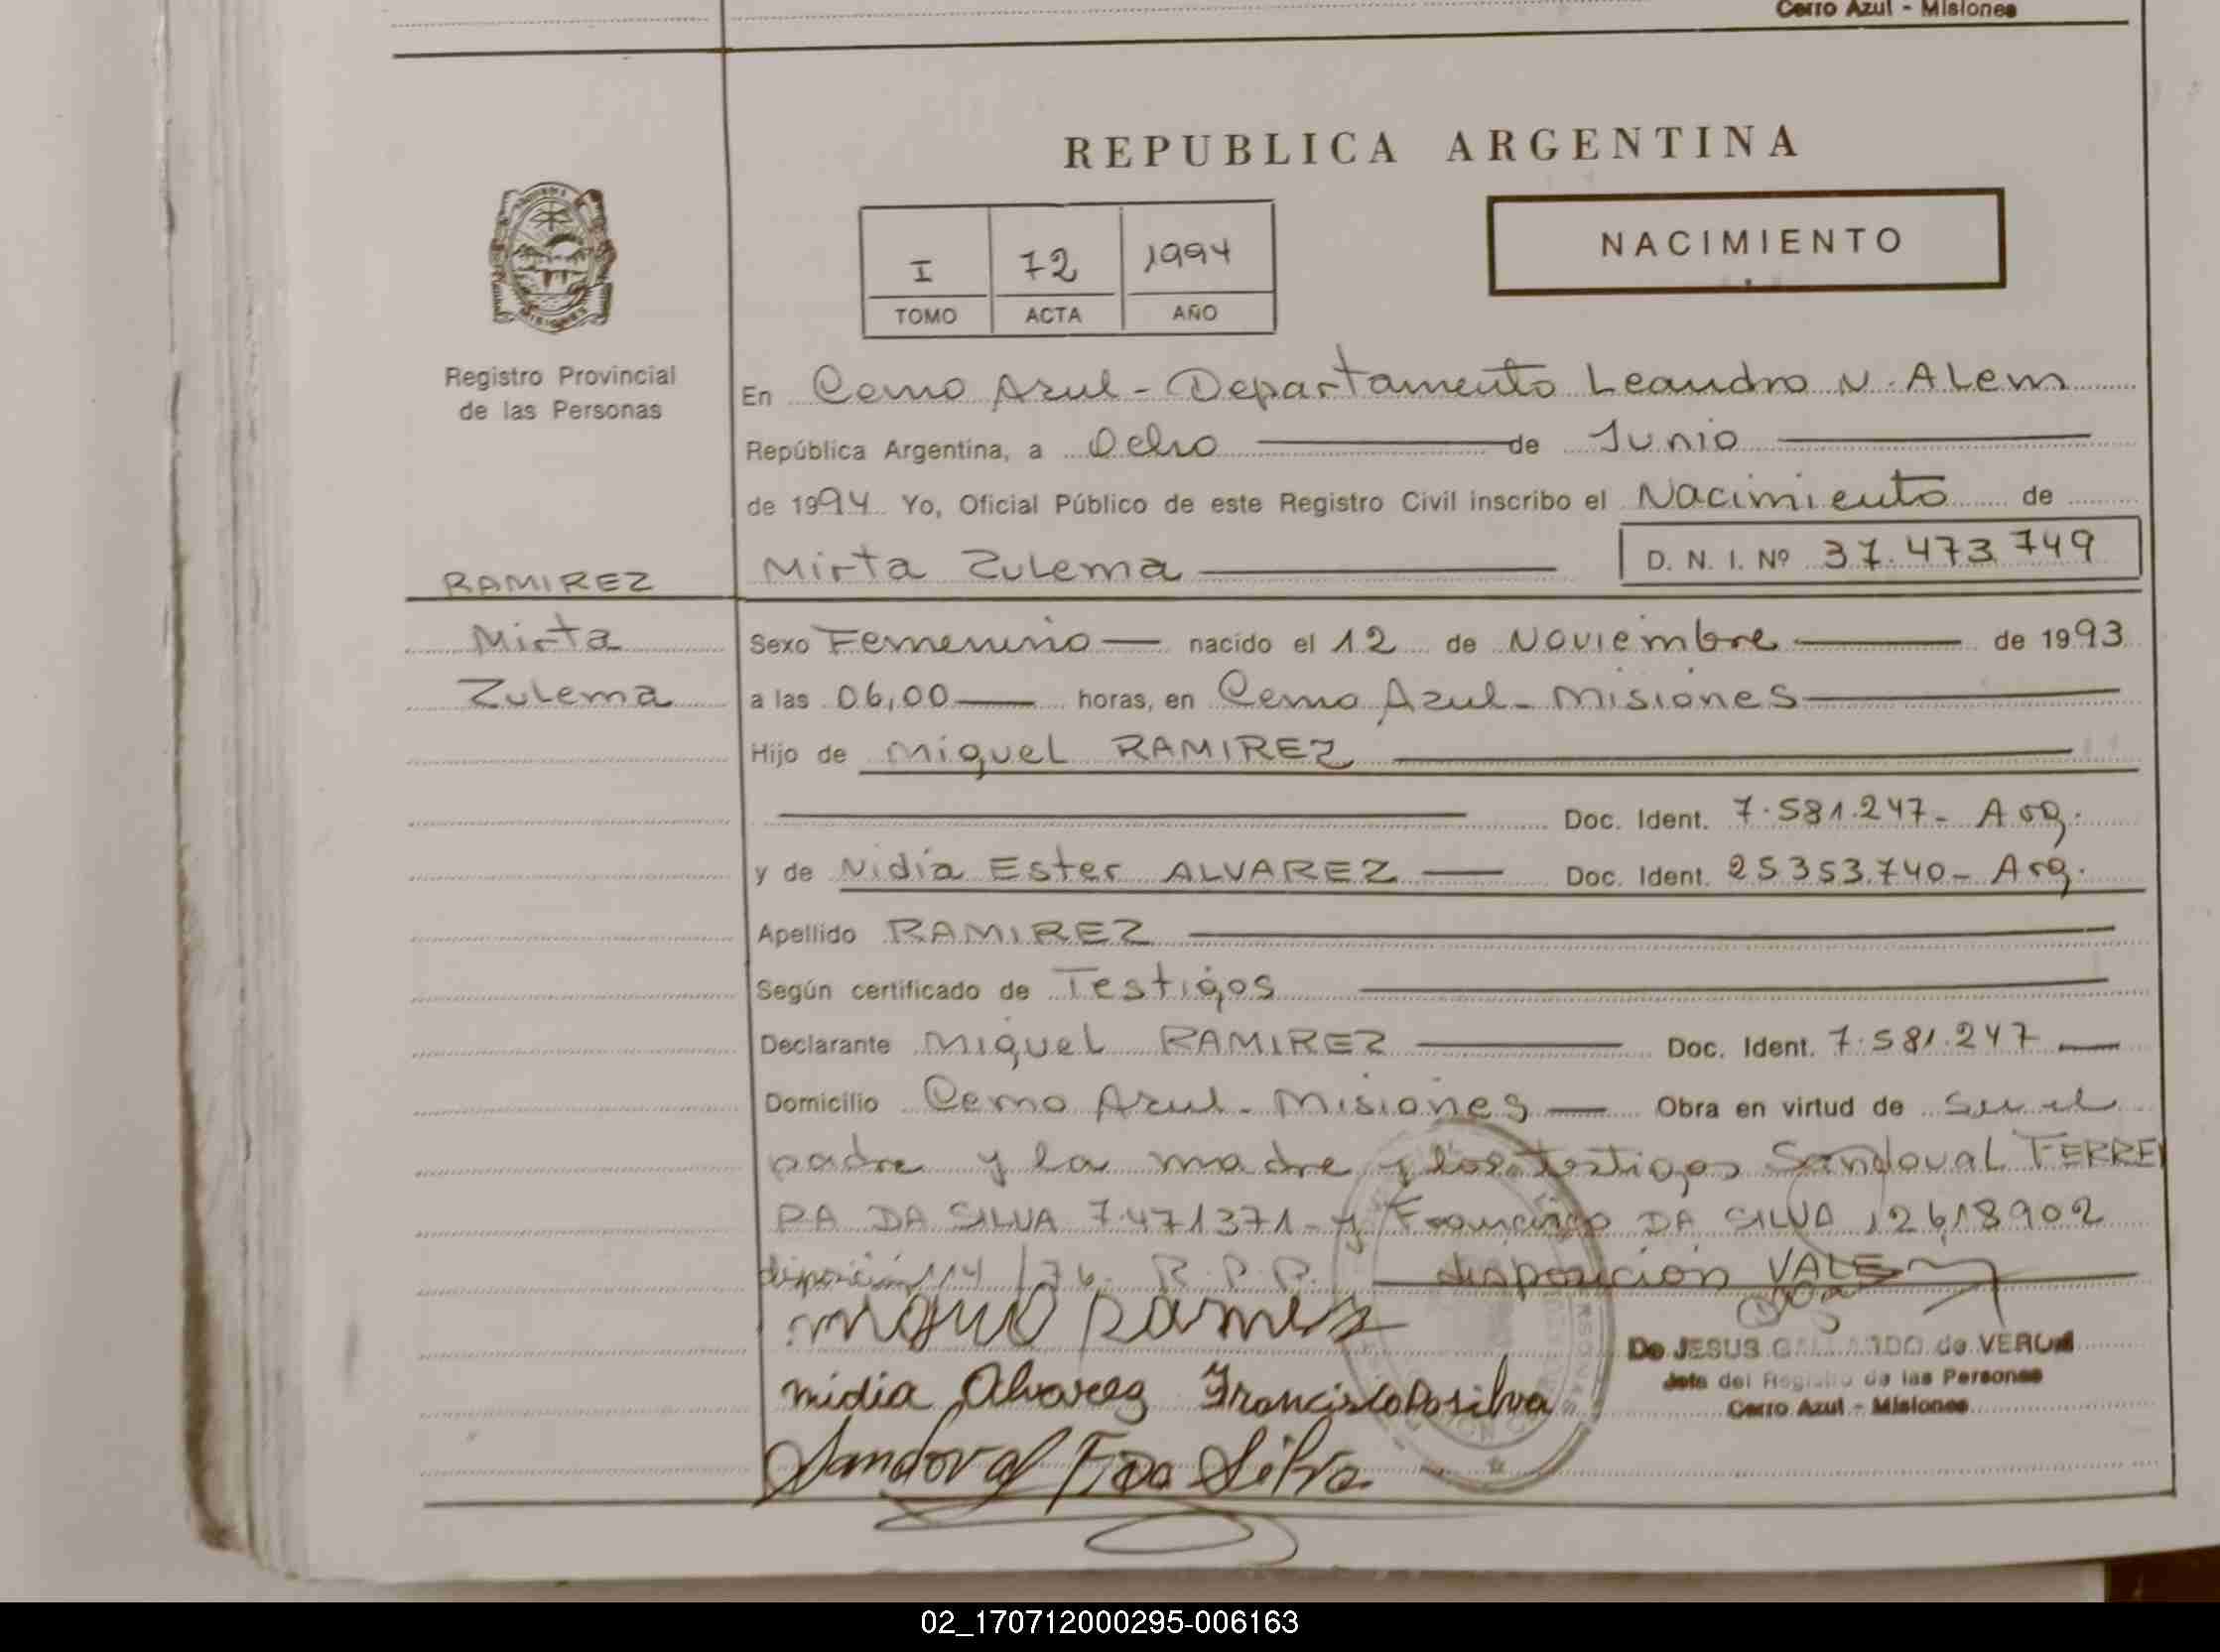 Cerro Azul - Misiones
REPUBLICA ARGENTINA
NACIMIENTO
I 72 1994
TOMO ACTA AÑO
Registro Provincial
de las Personas
En Cerro Azul - Departamento Leandro N. ALem
República Argentina, a Ocho de Junio
de 1994 Yo, Oficial Público de este Registro Civil inscribo el Nacimiento de
RAMIREZ Mirta Zulema D. N. I. Nº 37.473.749
Mirta Sexo Femenino nacido el 12 de Noviembre de 1993
Zulema a las 06,00 horas, en Cerro Azul - Misiones
Hijo de Miguel RAMIREZ
Doc. Ident. 7.581.247- Arg.
y de Nidia Ester ALVAREZ Doc. Ident. 25353.740- Arg.
Apellido RAMIREZ
Según certificado de Testigos
Declarante Miguel RAMIREZ Doc. Ident. 7.581.247
Domicilio Cerro Azul - Misiones Obra en virtud de Ser el
padre y la madre y los testigos Sandoval FERREI
RA DA SILVA 7.471371- y Francisco DA SILVA 12618902
disposición 114/76. R.P.P. disposición VALE
Miguel Ramirez
Nidia Alvarez Francisco Da silva
De JESUS GALLARDO de VERON
Jefe del Registro de las Personas
Cerro Azul - Misiones
Sandoval F Da Silva
02_170712000295-006163